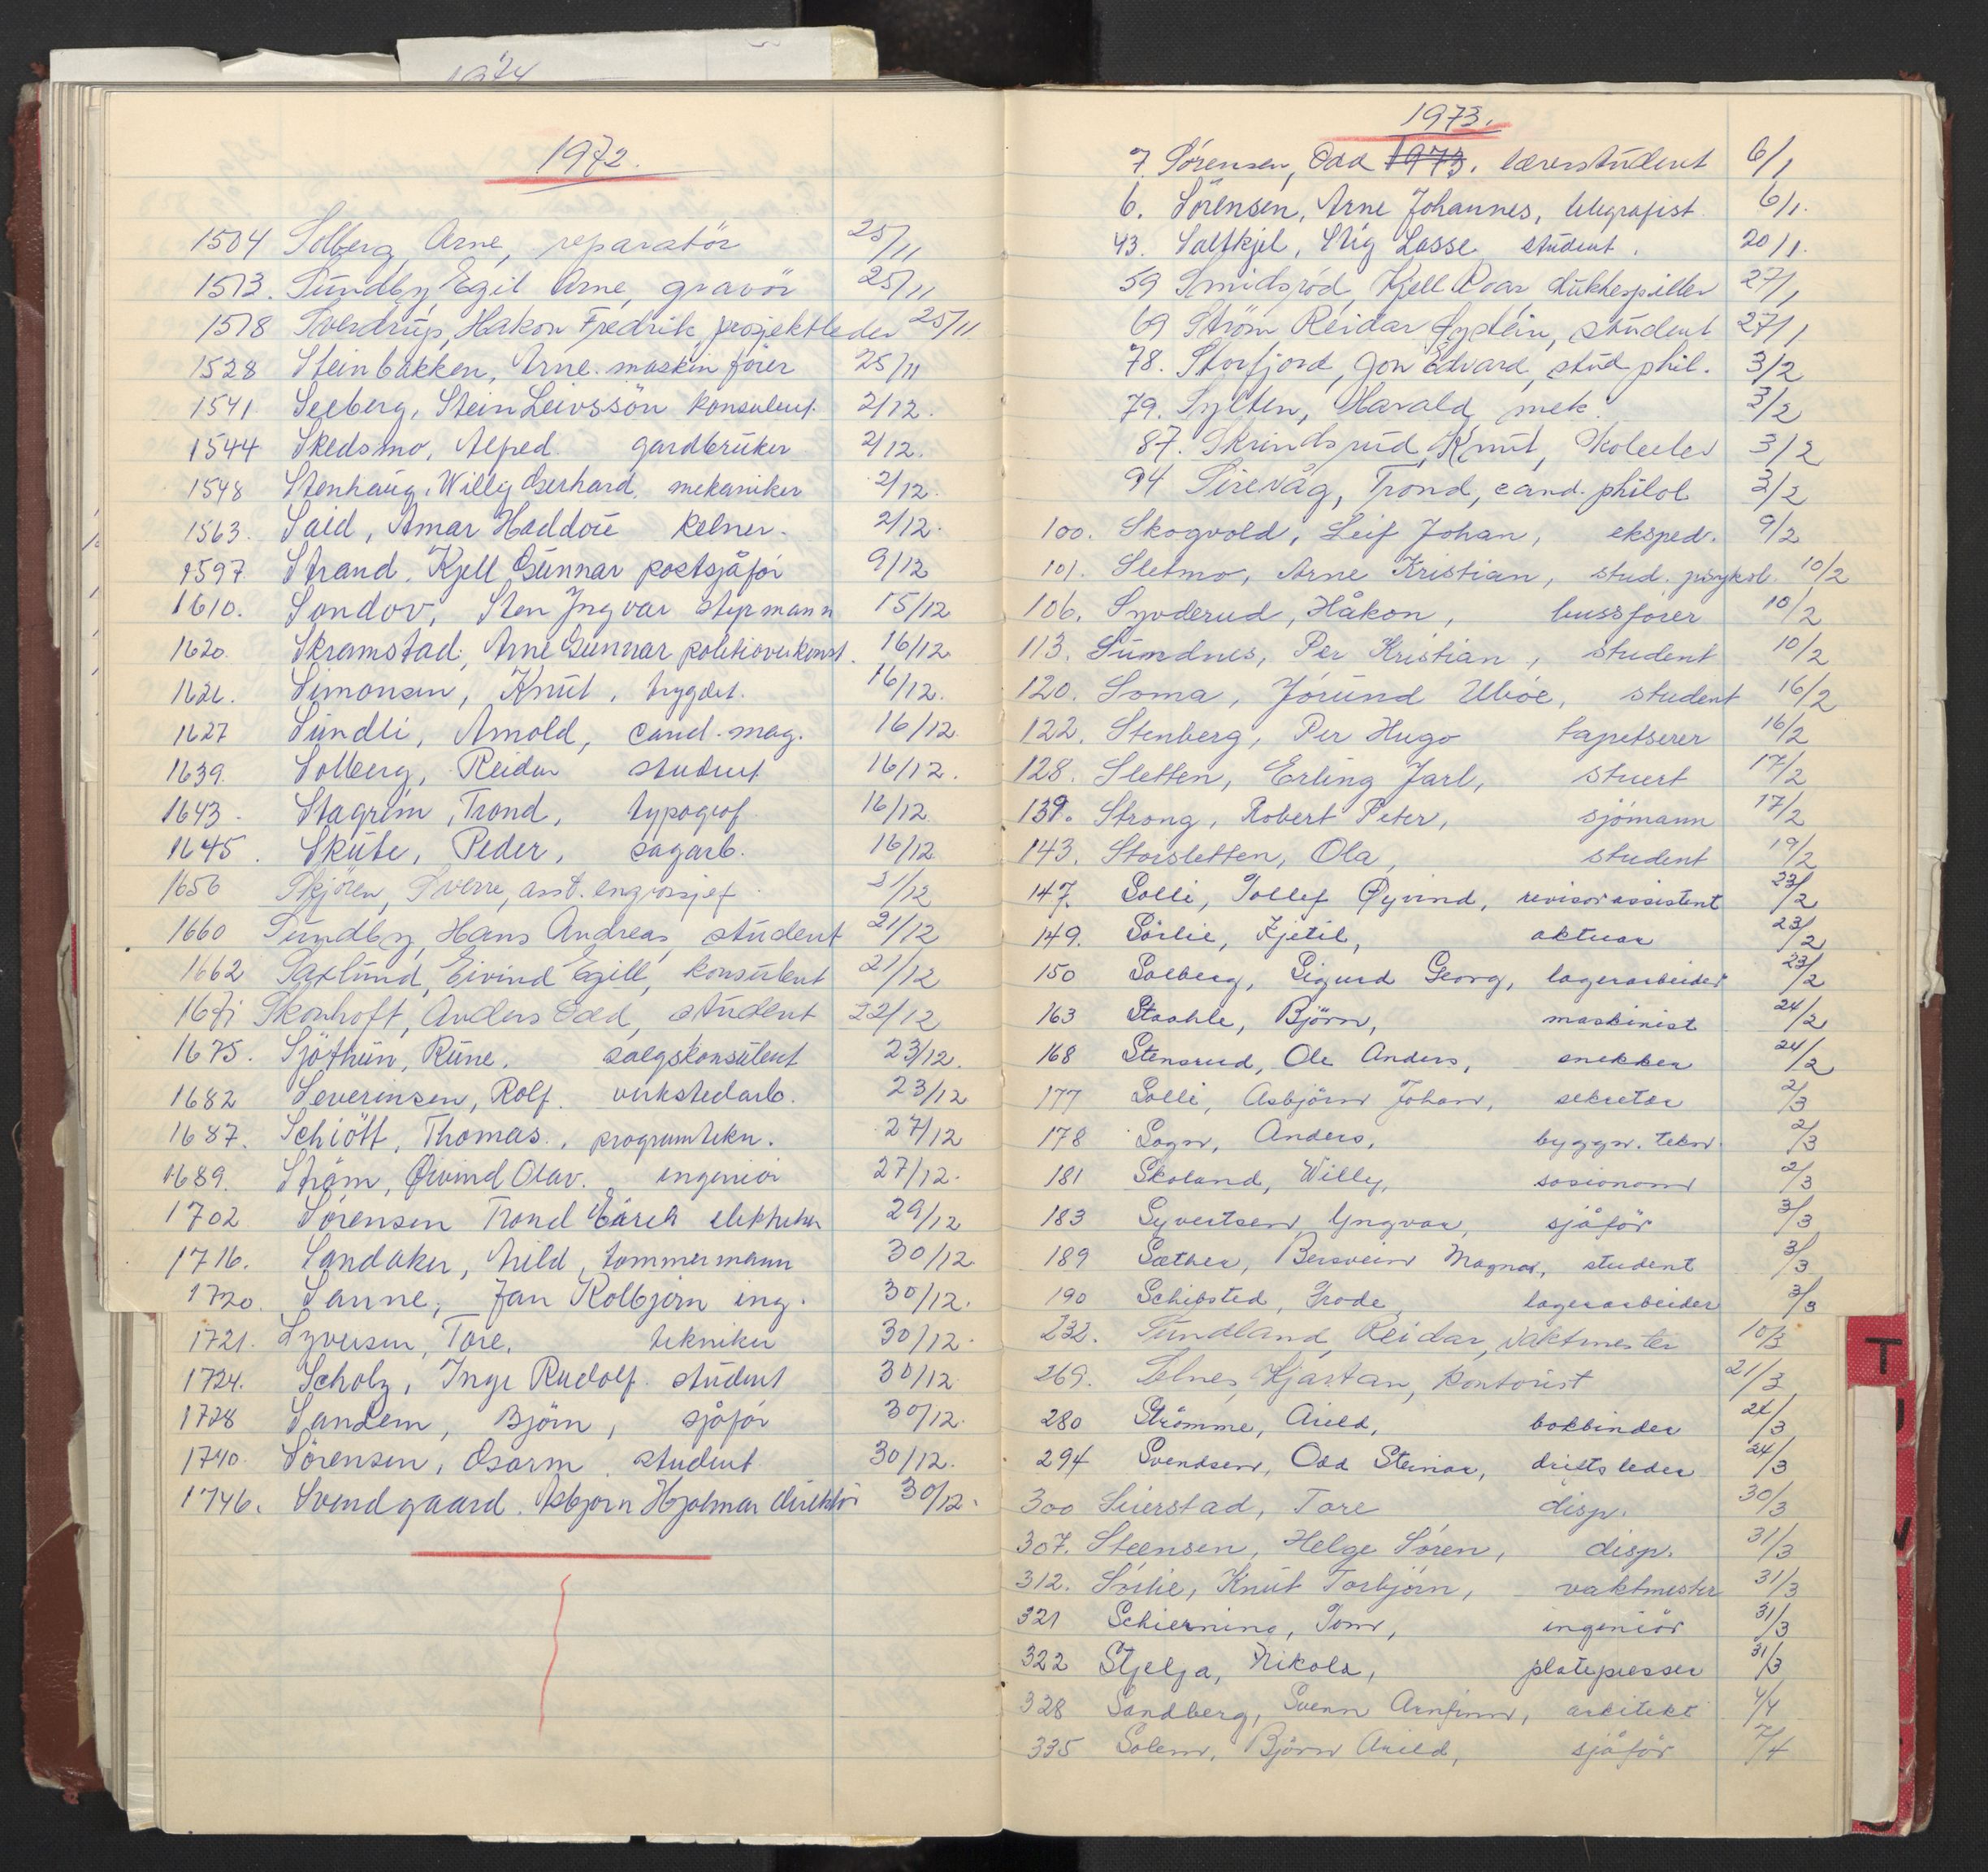 1974
1972.
1504 Solberg, Arne, reparatör 25/11
1513. Sundby, Egil Arne, gravör 25/11
1518 Sverdrup, Hakon Fredrik, prosjektleder 25/11
1528 Steinbakken, Arne. maskinförer 25/11
1541. Seeberg, Stein Leivssön konsulent. 2/12.
1544 Skedsmo, Alfred. gardbruker 2/12.
1548 Stenhaug, Willy Gerhard, mekaniker 2/12.
1563. Said, Amar Haddou kelner. 2/12.
1597 Strand, Kjell Gunnar postsjåför 9/12
1610. Sandov, Sten Ingvar styrmann 15/12
1620. Skramstad, Arne Gunnar politioverkonst. 16/12
Simonsen, Knut, 16/12.
1627 Sundli, Arnold, cand. mag. 16/12.
1639. Solberg, Reidar student 16/12.
1643. Stagrim, Trond, typograf 16/12
1645. Skute, Peder, sagarb. 16/12
1656 Skjören, Sverre, asst. engrossjef. 21/12
1660 Sundby, Hans Andreas, student 21/12
1662 Saxlund, Eivind Egill, konsulent 21/12
1671 Skonhoft, Anders Odd, student 22/12
1675. Sjöthun, Rune. salgskonsulent 23/12.
1682 Severinsen, Rolf. verkstedarb. 23/12
1687. Schiött, Thomas, programtekn. 27/12
1689. Ström, Øivind Olav. ingeniör 27/12.
1702 Sörensen Trond elektriker 29/12
1716. Sandaker, Arild, tömmermann 30/12.
1720. Sanne, Jan Kolbjørn ing. 30/12.
1721. Syversen, Tore. tekniker 30/12.
1724. Scholz, Inge Rudolf. student 30/12
1728 Sandem, Björn, sjåför 30/12.
1740. Sörensen, student 30/12.
1746. Svendgaard. Asbjørn Hjalmar direktör 30/12.
1973.
7. Sörensen, Odd 1973. lærerstudent 6/1
6. Sörensen, Arne Johannes, telegrafist 6/1.
43. Saltkjel, Stig Lasse student. 20/1.
59 Smidsröd, Kjell Roar, dukkespiller 27/1
69 Ström, Reidar Øystein, student 27/1
78. Storfjord, Jon Edvard, stud phil. 3/2
79. Sylten, Harald, mek. 3/2
87. Skrindsrud, Knut, skoleelev 3/2
94 Sirevåg, Trond, cand. philol 3/2
100. Skogvold, Leif Johan, eksped. 9/2
101. Sletmo, Arne Kristian, stud. psykol. 10/2
106. Syvderud, Håkon, bussförer 10/2
113. Sundnes, Per Kristian, student 10/2
120. Soma, Jörund Uböe, student 16/2
122. Stenberg, Per Hugo tapetserer 16/2
128. Sletten, Erling Jarl, stuert 17/2
139. Strong, Robert Peter, sjömann 17/2
143. Storsletten, Ola, student 19/2
147. Solli, Tollef Øyvind, revisorassistent 23/2
149. Sörlie, Kjetil, aktuar 23/2
150 Solberg, Sigurd Georg, lagerarbeider 23/2
163 Staahle, Björn, maskinist 24/2
168 Stensrud, Ole Anders, snekker 24/2
177 Solli, Asbjörn Johan, sekretær 2/3
178 Sogn, Anders, byggn. tekn. 2/3
181 Skoland, Willy, sosionom 2/3
183 Syvertsen, Yngvar, sjåför 3/3
189 Sæther, Bersvein Magnar, student 3/3
190 Schibsted, Frode, lagerarbeider 3/3
232. Sundland, Reidar, vaktmester 10/3
269. Selnes, Kjartan, kontorist 21/3
280 Strömme, Arild, bokbinder 24/3
294 Svendsen, Odd Steinar, driftsleder 24/3
300 Seierstad, Tore disp. 30/3
307. Steensen, Helge Sören, disp. 31/3
312. Sörlie, Knut Torbjörn, vaktmester 31/3
321 Schierning, Tom, ingeniör 31/3
322 Stjelja, Nikola, platepresser 31/3
328 Sandberg, Svenn Arnfinn, arkitekt 4/4
335 Solem, Björn Arild, sjåför 7/4
T